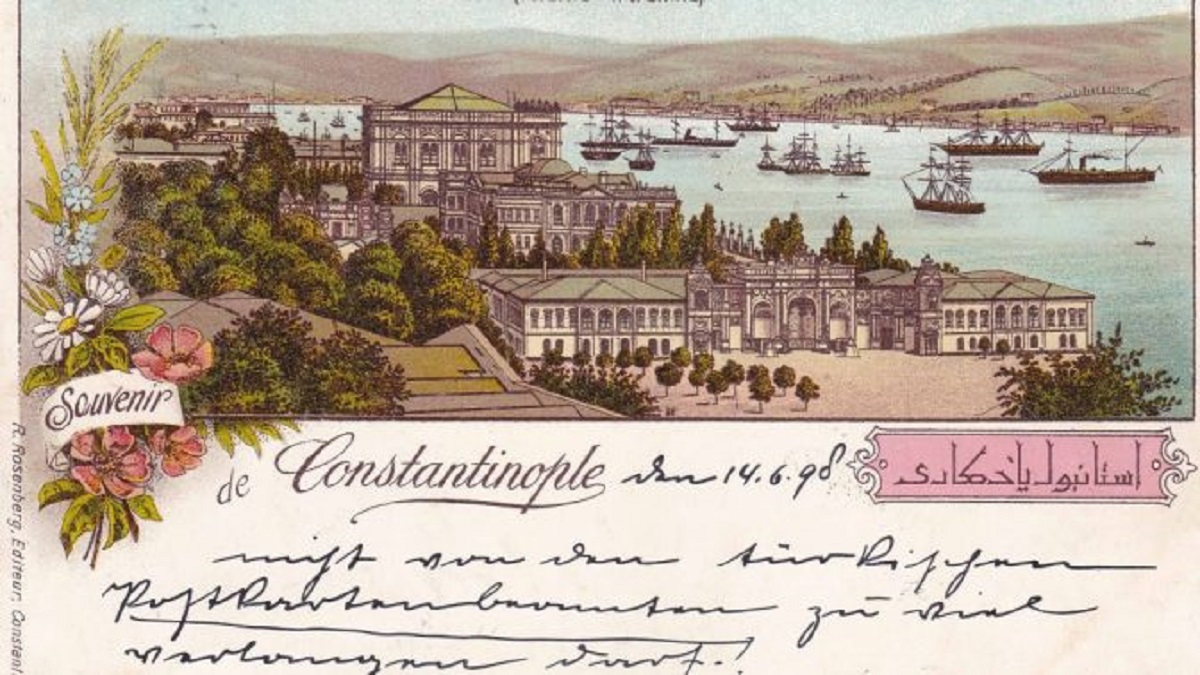 Souvenir
de Constantinople den 14.6.98
استانبول ياذكارى
nicht von den türkischen
Postkartenbeamten zu viel
verlangen darf.!
R. Rosenberg, Editeur, Constant